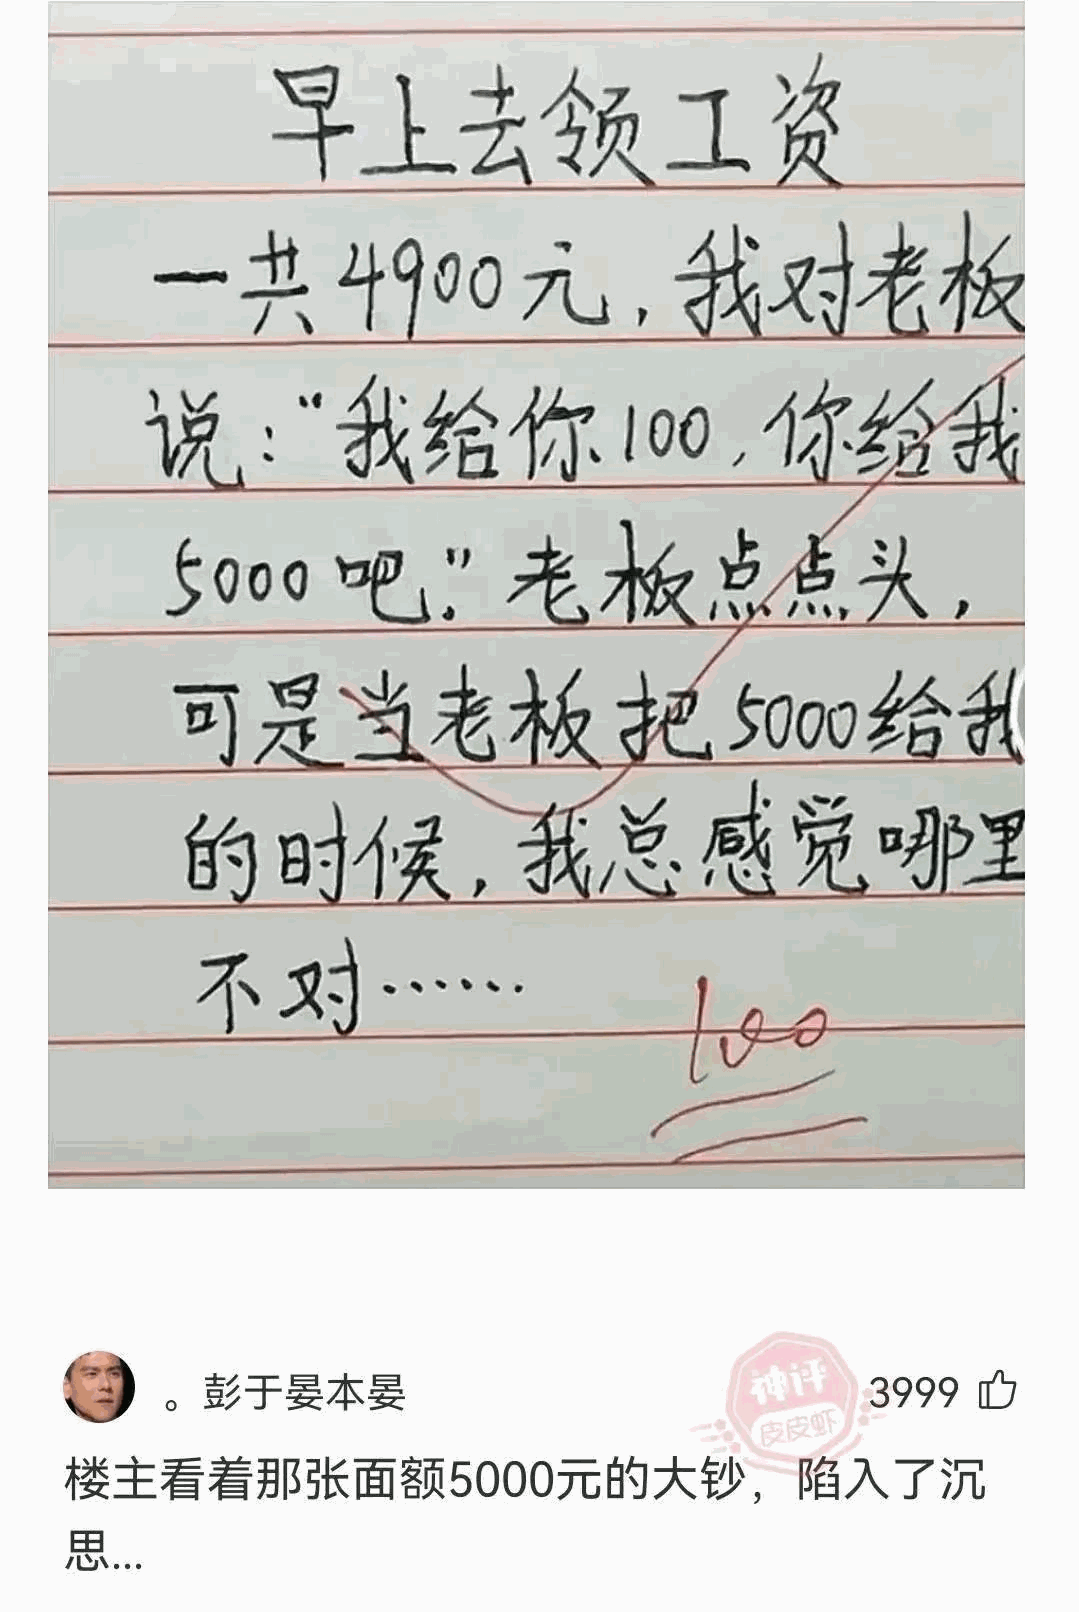 早上去领工资
一共4900元，我对老板
说：“我给你100，你给我
5000吧.”老板点点头，
可是当老板把5000给我
的时候，我总感觉哪里
不对……
100
。彭于晏本晏
神评
皮皮虾
3999
楼主看着那张面额5000元的大钞，陷入了沉
思...